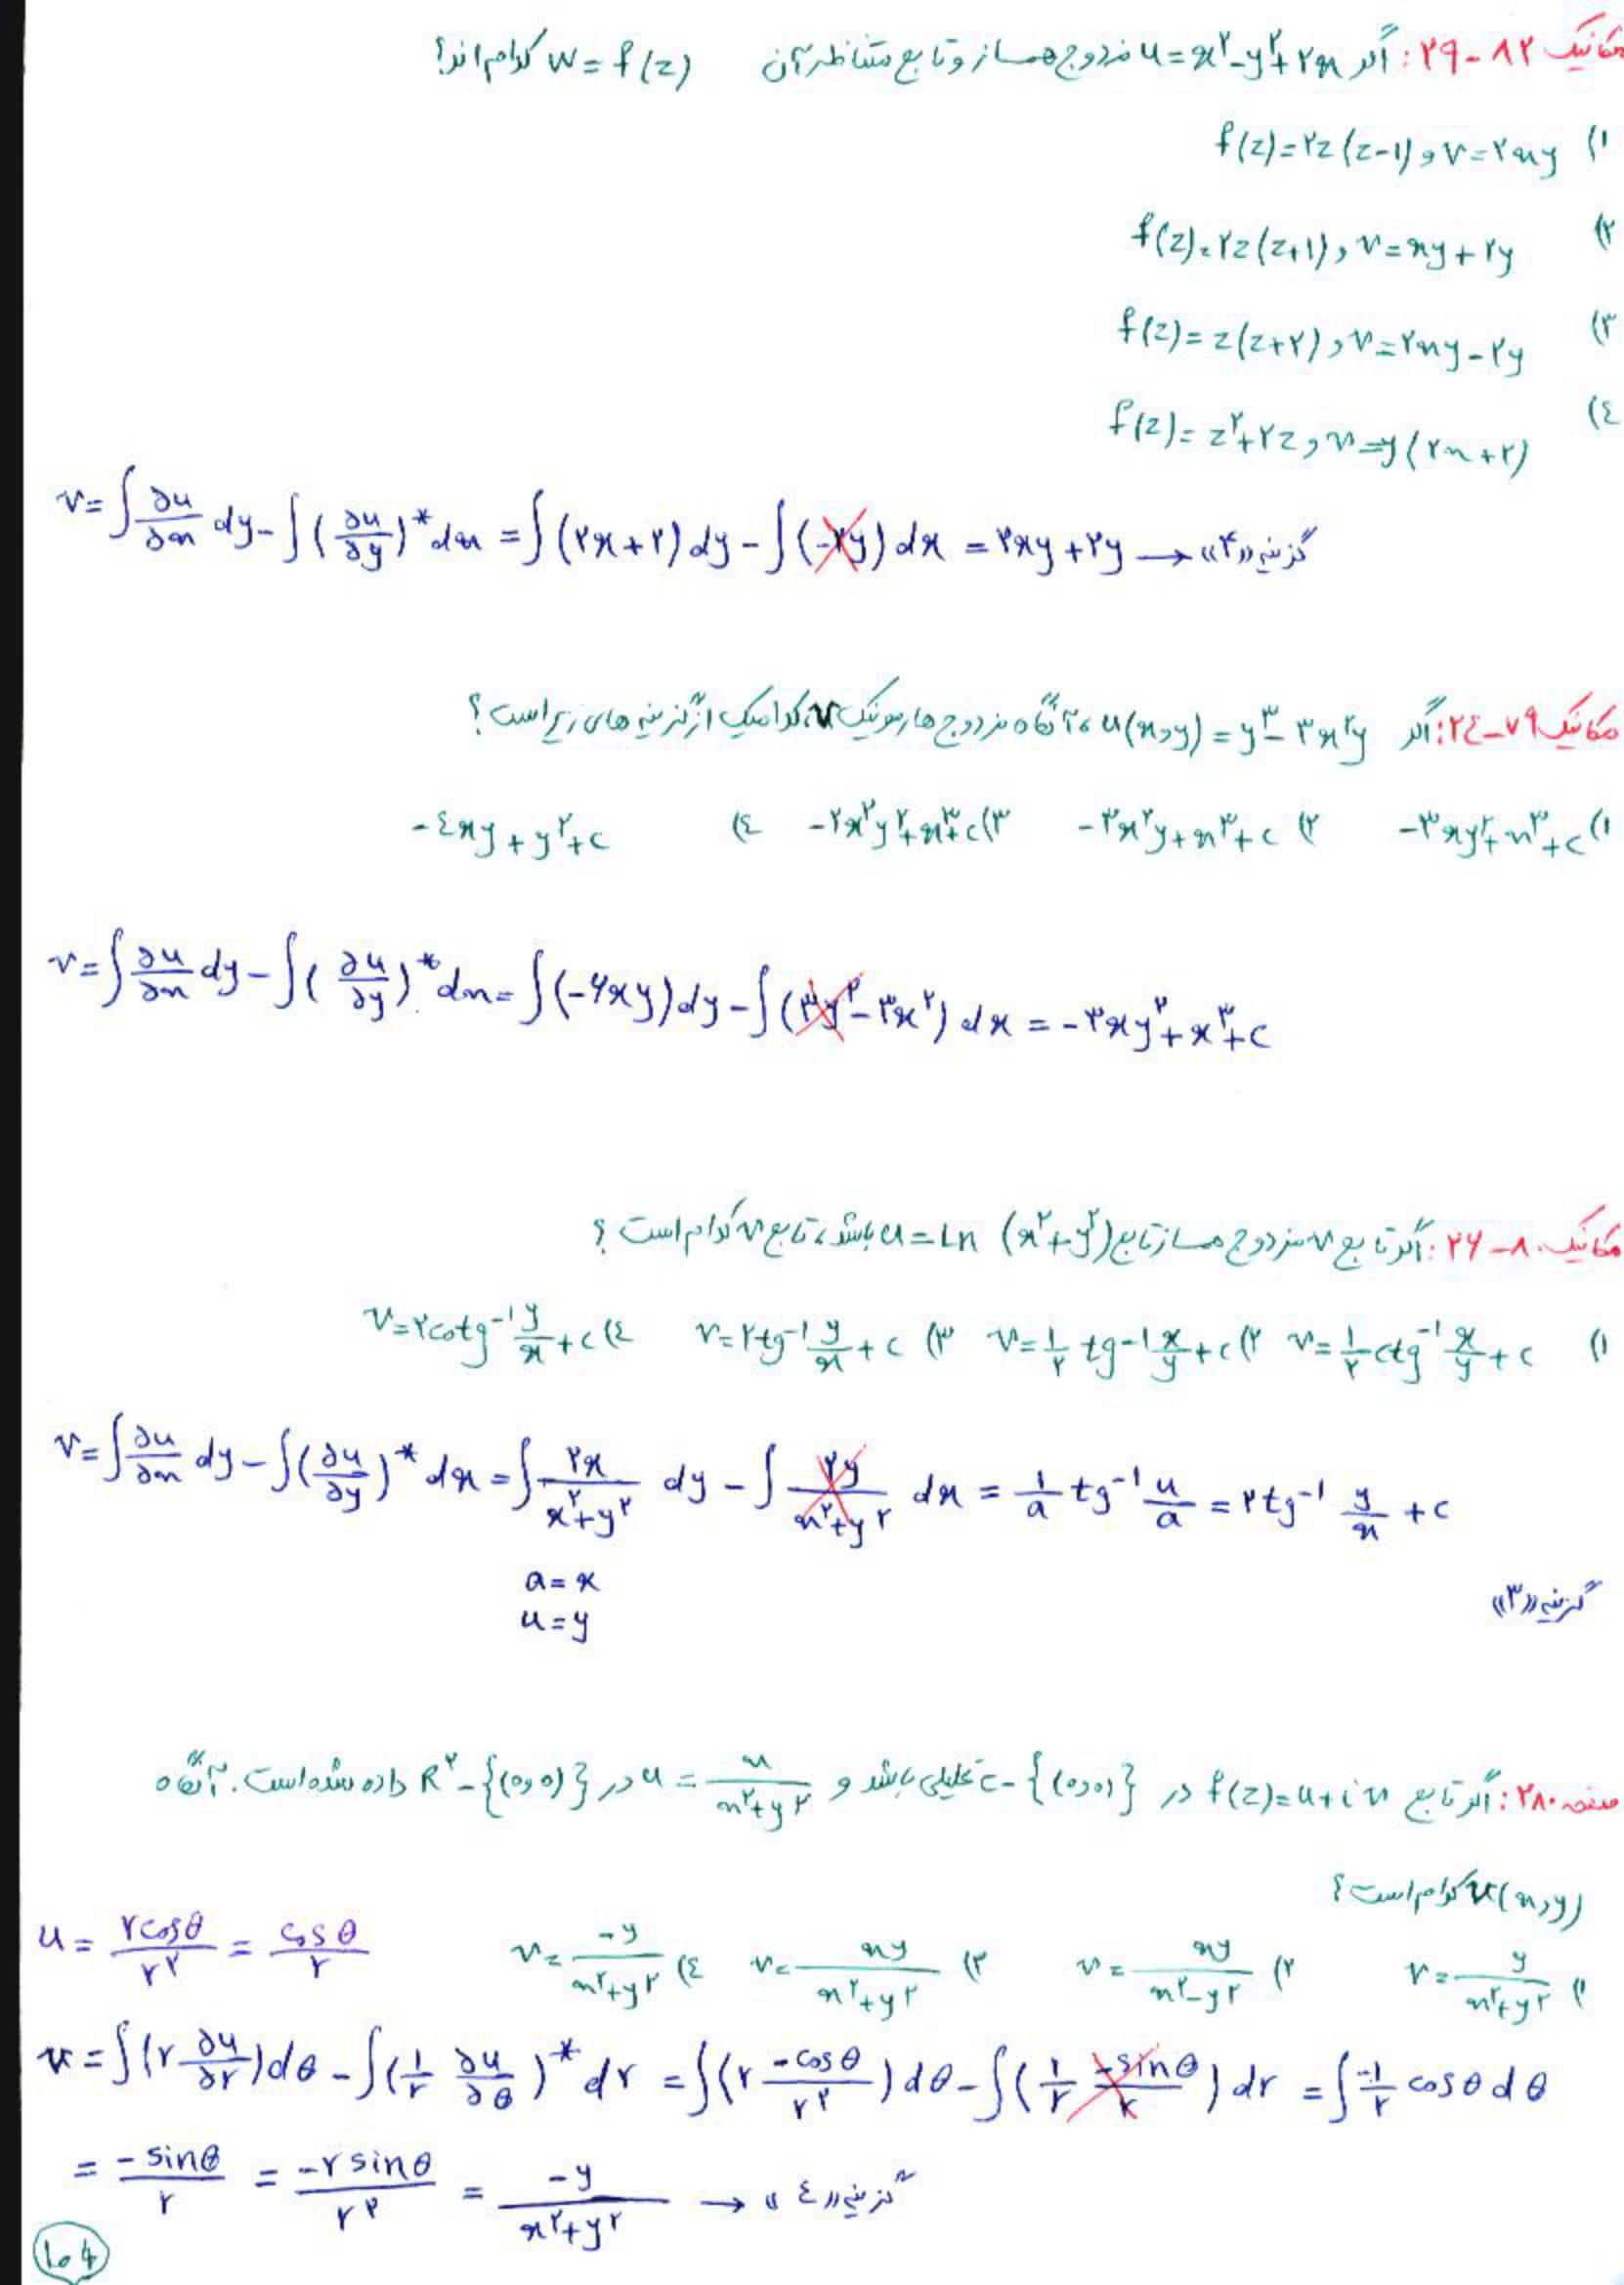 مکانیک ۸۲-۲۹: اگر u=x²-y²+۲x مزدوج همساز و تابع متناظر آن w=f(z) کدام اند؟
۱) f(z)=۲z(z-۱) و v=۲xy
۲) f(z)=۲z(z+۱) , v=xy+۲y
۳) f(z)=z(z+۲) , v=۲xy-۲y
٤) f(z)=z²+۲z , v=y(۲x+۲)
v=∫∂u/∂x dy-∫(∂u/∂y)* dx=∫(۲x+۲)dy-∫(-۲y)dx=۲xy+۲y → گزینه «۴»
مکانیک ۷۹-۲٤: اگر u(x,y)=y³-۳x²y، آنگاه مزدوج هارمونیک u، کدامیک از گزینه های زیر است؟
۱) -۳xy²+x³+c ۲) -۳x²y+x³+c ۳) -۲x²y²+x³+c ٤) -٤xy+y²+c
v=∫∂u/∂x dy-∫(∂u/∂y)* dx=∫(-۶xy)dy-∫(۳y²-۳x²)dx=-۳xy²+x³+c
مکانیک ۸۰-۲۶: اگر تابع v مزدوج همساز تابع u=Ln (x²+y²) باشد، تابع v کدام است؟
۱) v=۱/۲ ctg⁻¹ x/y+c ۲) v=۱/۲ tg⁻¹ x/y+c ۳) v=۲tg⁻¹ y/x+c ٤) v=۲cotg⁻¹ y/x+c
v=∫∂u/∂x dy-∫(∂u/∂y)* dx=∫۲x/(x²+y²) dy-∫۲y/(x²+y²) dx=۱/a tg⁻¹ u/a=۲tg⁻¹ y/x+c
a=x
u=y
گزینه «۳»
صفحه ۲۸۰: اگر تابع f(z)=u+iv در C-{(۰,۰)} تحلیلی باشد و u=x/(x²+y²) در R²-{(۰,۰)} داده شده است. آنگاه
v(x,y) کدام است؟
۱) v=y/(x²+y²) ۲) v=xy/(x²-y²) ۳) v=xy/(x²+y²) ٤) v=-y/(x²+y²)
u=rcosθ/r²=cosθ/r
v=∫(r ∂u/∂r)dθ-∫(۱/r ∂u/∂θ)* dr=∫(r -cosθ/r²)dθ-∫(۱/r -sinθ/r)dr=∫-۱/r cosθdθ
=-sinθ/r=-rsinθ/r²=-y/(x²+y²) → گزینه «٤»
۱۰۶